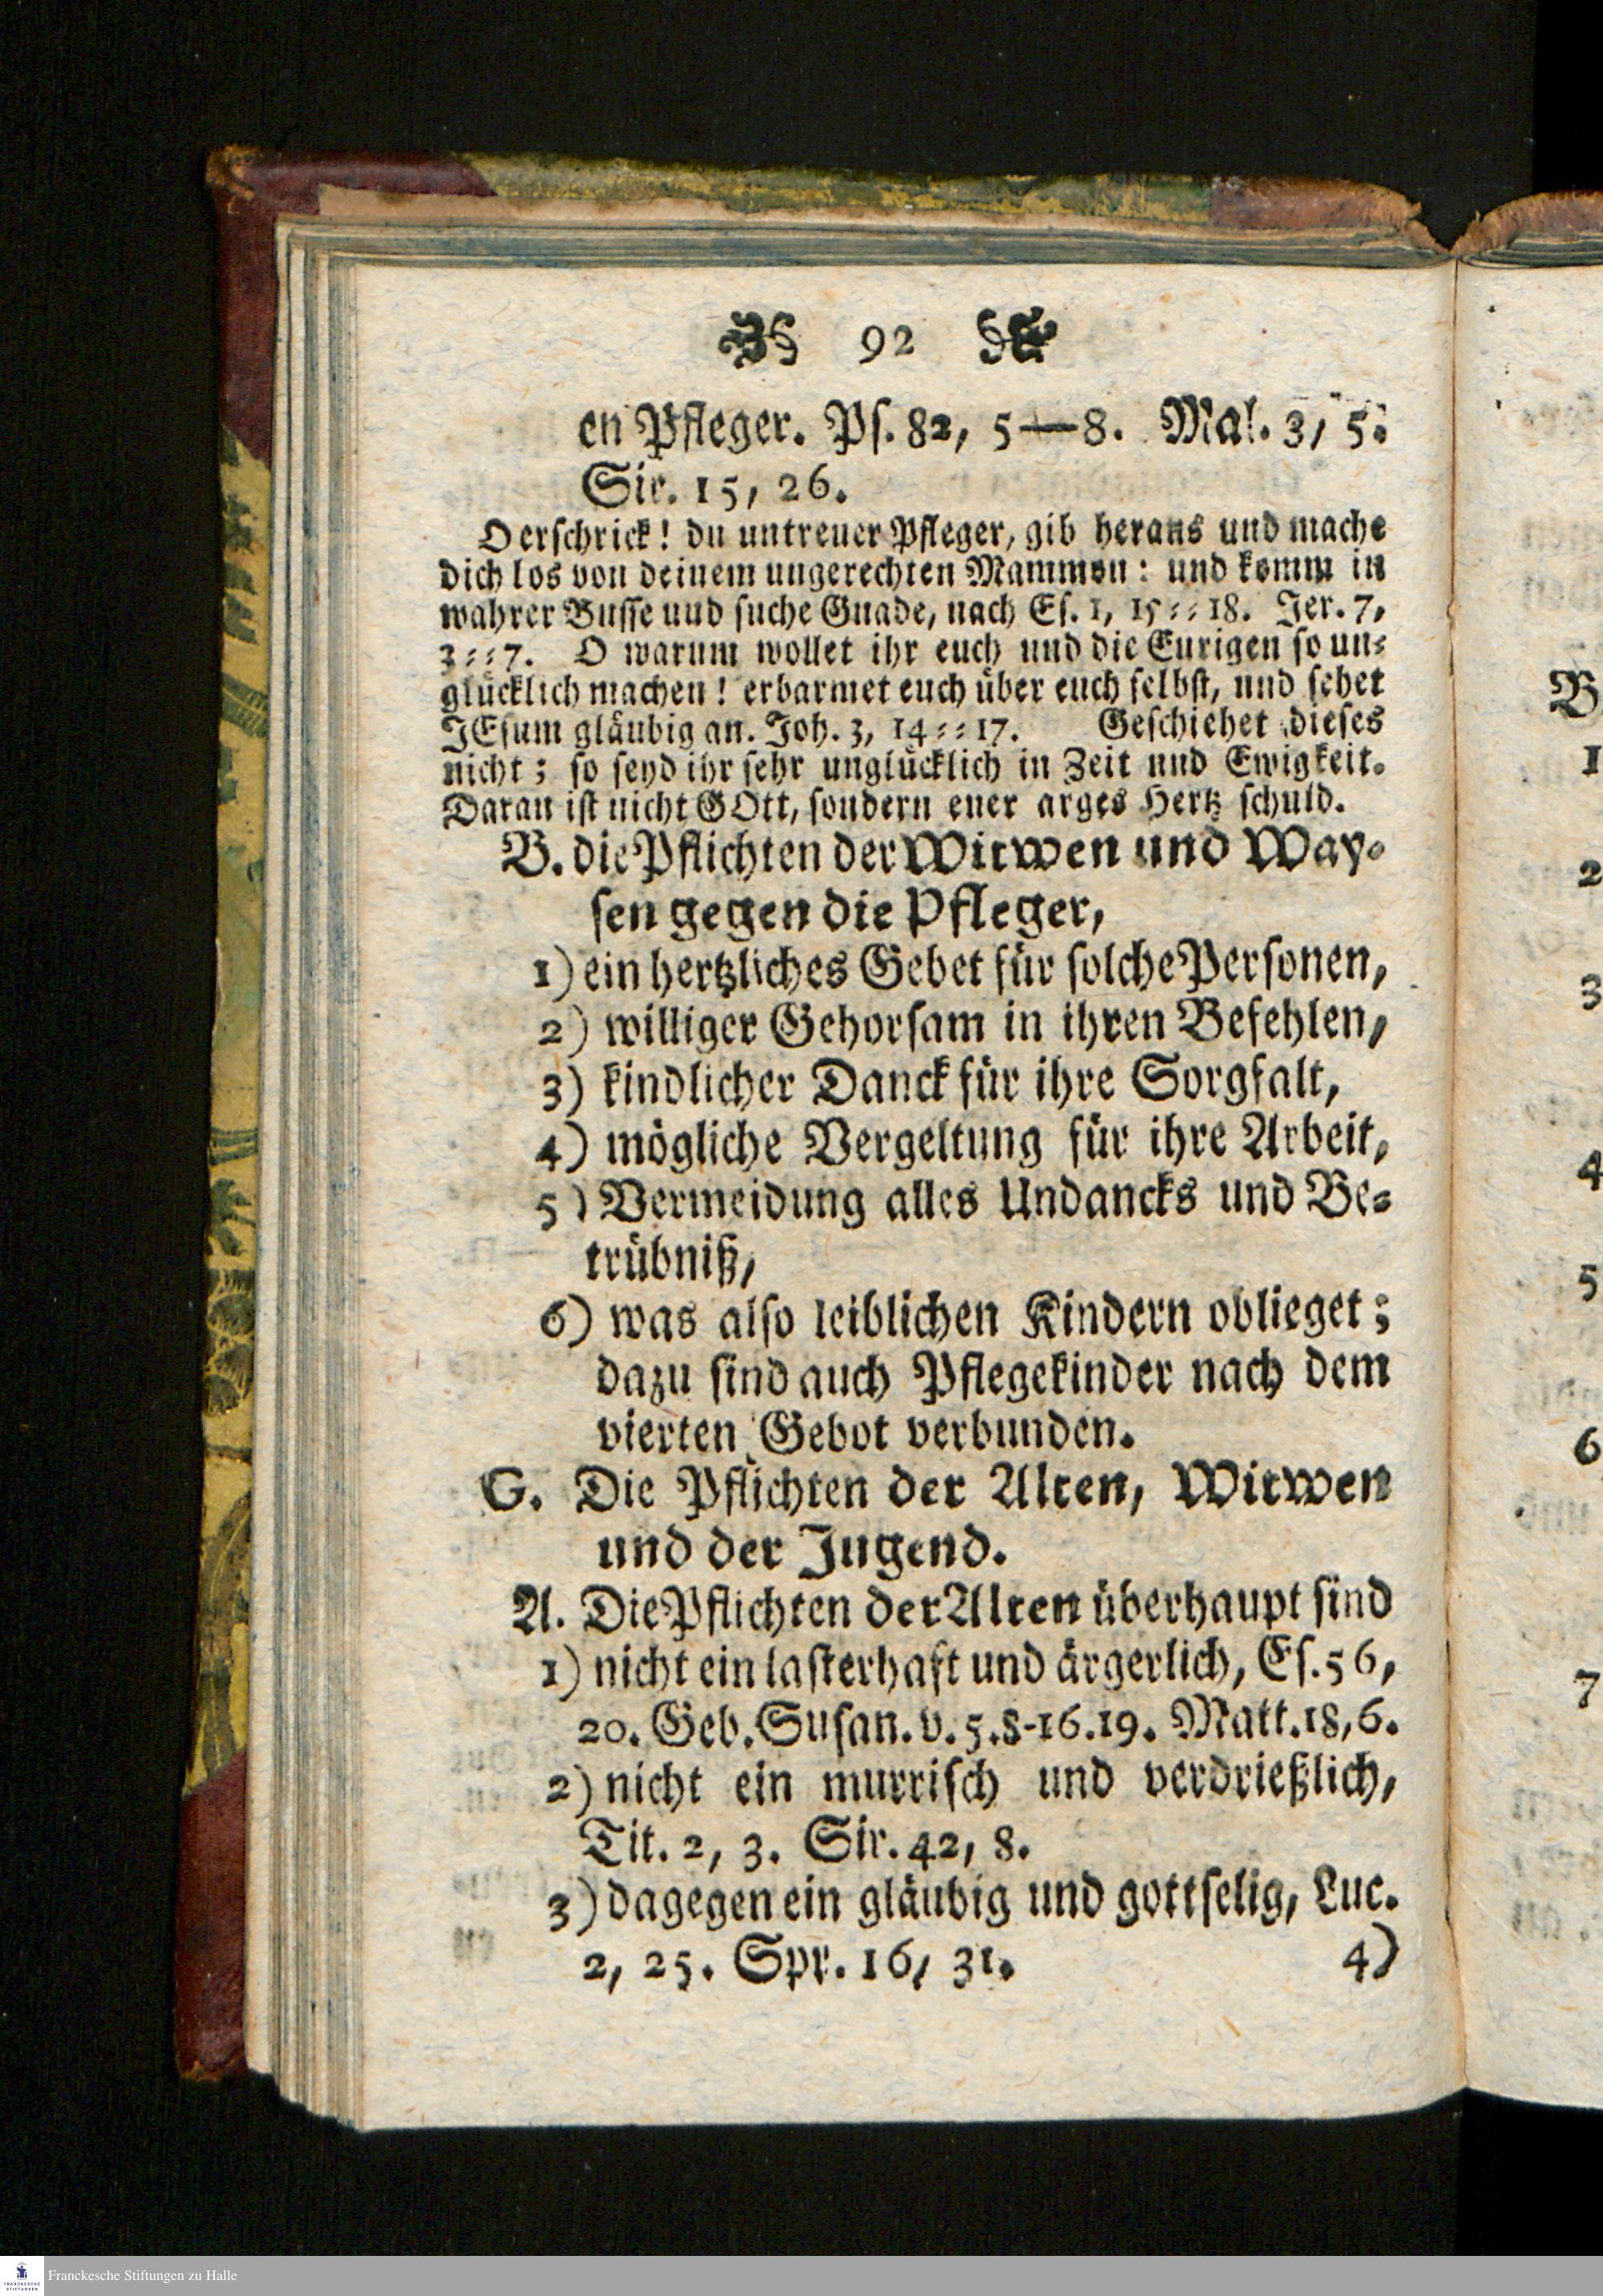 92
en Pfleger. Ps. 82, 5—8. Mal. 3, 5.
Sir. 15, 26.
O erschrick! du untreuer Pfleger, gib heraus und mache
dich los von deinem ungerechten Mammon: und komm in
wahrer Busse und suche Gnade, nach Es. 1, 15==18. Jer. 7,
3==7. O warum wollet ihr euch und die Eurigen so un=
glücklich machen! erbarmet euch über euch selbst, und sehet
JEsum gläubig an. Joh. 3, 14==17. Geschiehet dieses
nicht; so seyd ihr sehr unglücklich in Zeit und Ewigkeit.
Daran ist nicht GOtt, sondern euer arges Hertz schuld.
B. die Pflichten der Witwen und Way=
sen gegen die Pfleger,
1) ein hertzliches Gebet für solche Personen,
2) williger Gehorsam in ihren Befehlen,
3) kindlicher Danck für ihre Sorgfalt,
4) mögliche Vergeltung für ihre Arbeit,
5) Vermeidung alles Undancks und Be=
trübniß,
6) was also leiblichen Kindern oblieget;
dazu sind auch Pflegekinder nach dem
vierten Gebot verbunden.
G. Die Pflichten der Alten, Witwen
und der Jugend.
A. Die Pflichten der Alten überhaupt sind
1) nicht ein lasterhaft und ärgerlich, Es. 56,
20. Geb. Susan. v. 5. 8-16. 19. Matt. 18, 6.
2) nicht ein murrisch und verdrießlich,
Tit. 2, 3. Sir. 42, 8.
3) dagegen ein gläubig und gottselig, Luc.
2, 25. Spr. 16, 31. 4)
B
1
2
3
4
5
6
7
FRANCKESCHE
STIFTUNGEN
Franckesche Stiftungen zu Halle